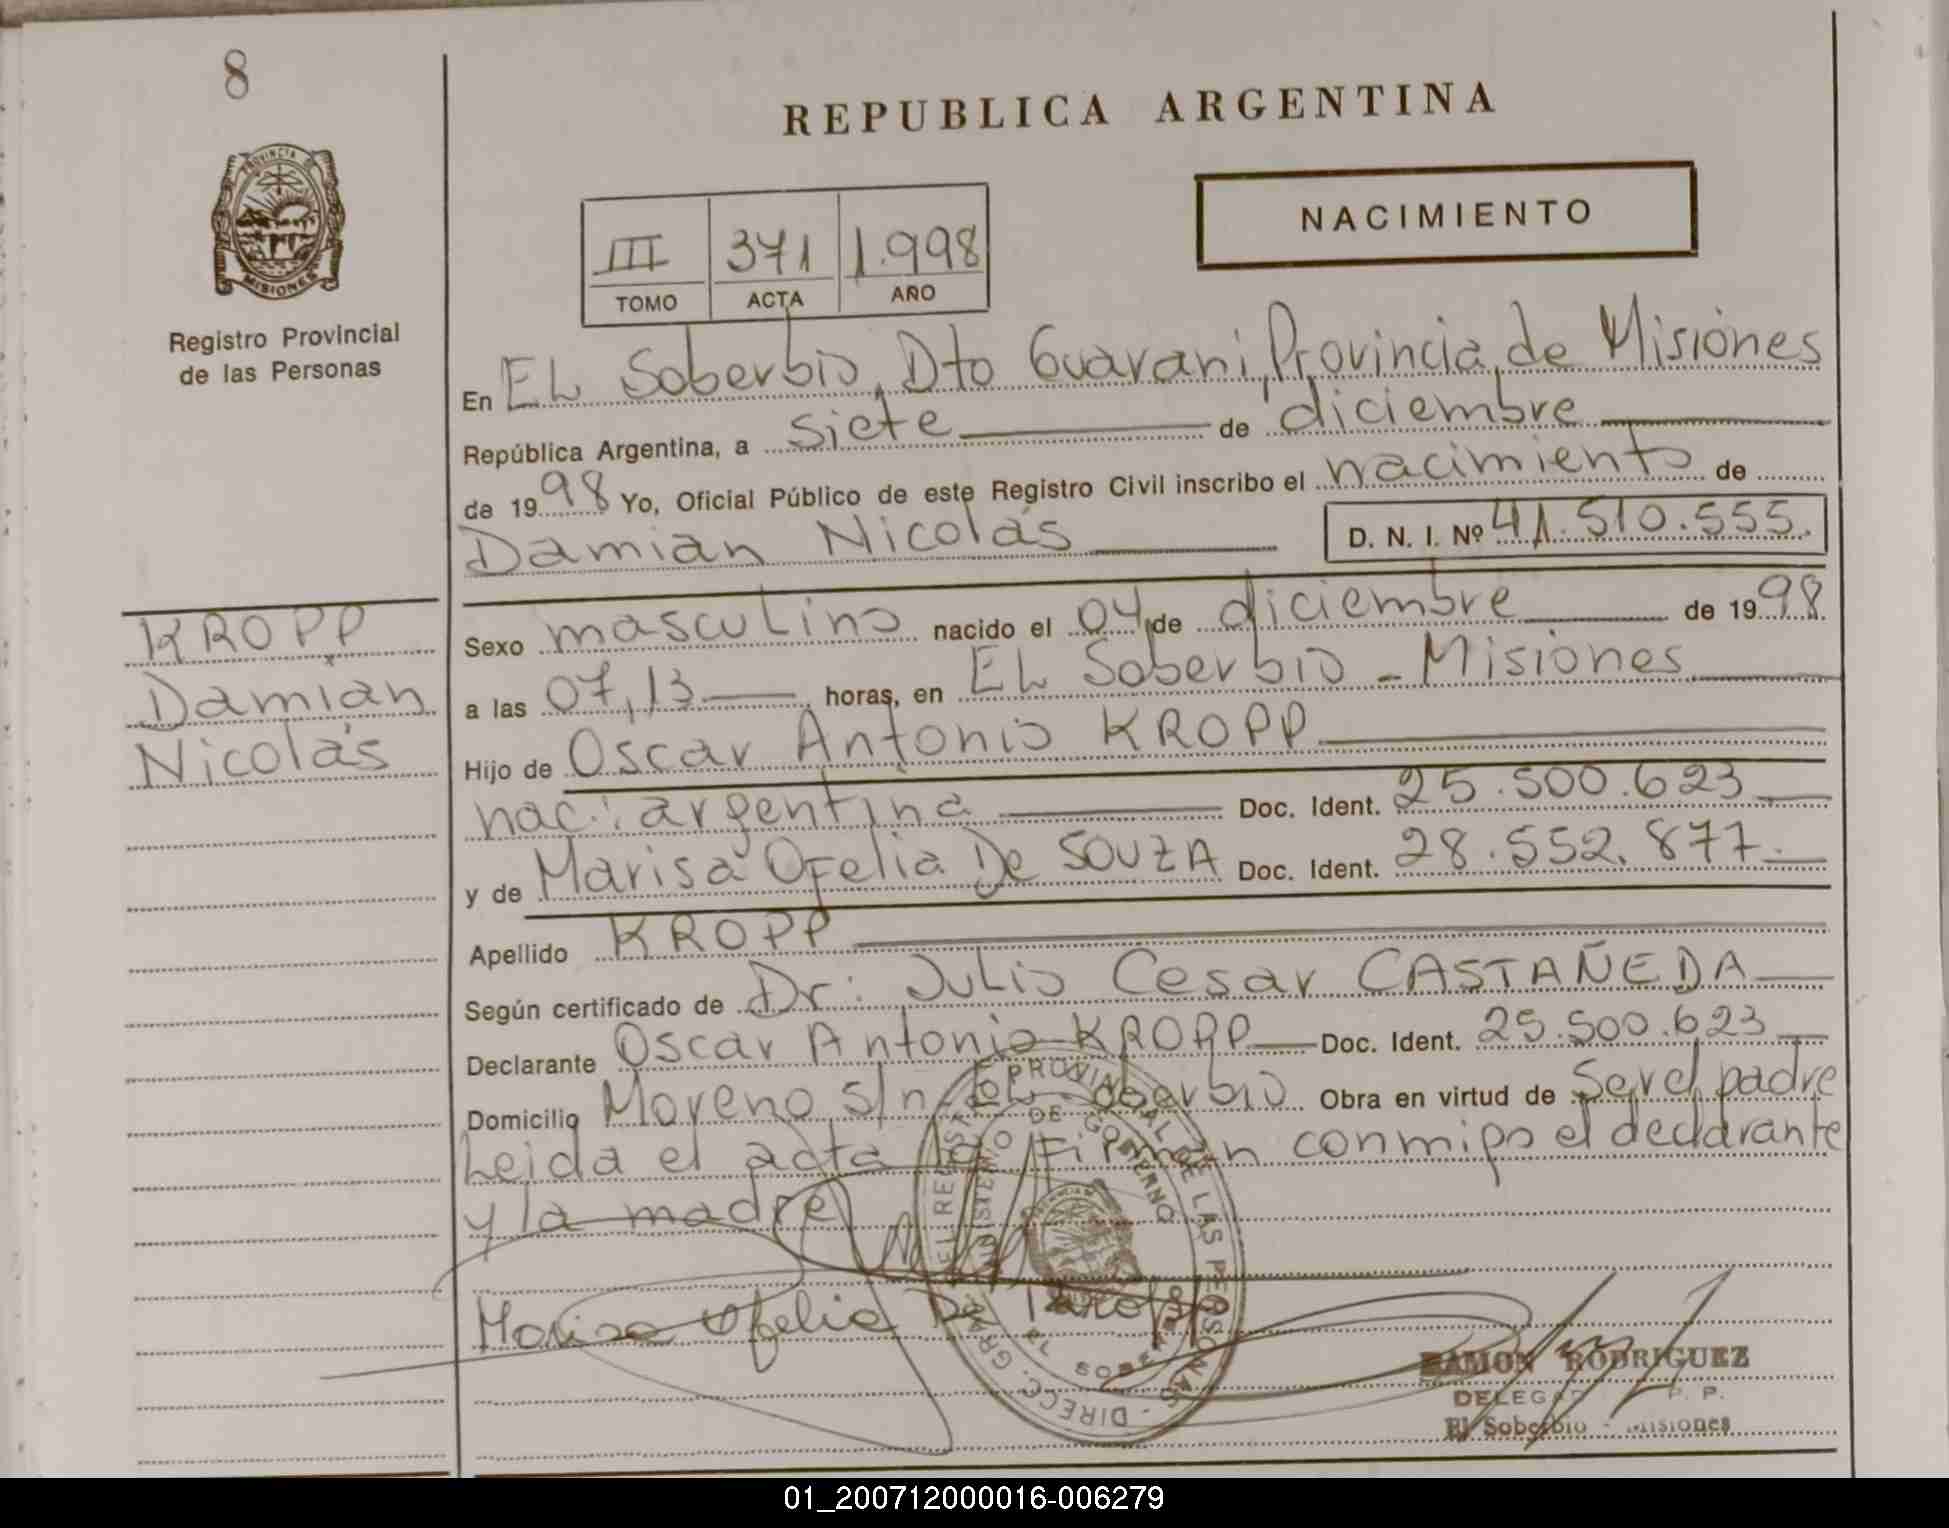 8
REPUBLICA ARGENTINA
PROVINCIA DE
MISIONES
Registro Provincial
de las Personas
NACIMIENTO
III 371 1.998
TOMO ACTA AÑO
En EL Soberbio, Dto Guarani, Provincia de Misiones
República Argentina, a siete de diciembre
de 1998 Yo, Oficial Público de este Registro Civil inscribo el nacimiento de
Damian Nicolás D. N. I. Nº 41.510.555.
KROPP
Damian
Nicolás
Sexo masculino nacido el 04 de diciembre de 1998
a las 07,13 horas, en EL Soberbio - Misiones
Hijo de Oscar Antonio KROPP
nac: argentina Doc. Ident. 25.500.623
y de Marisa Ofelia De SOUZA Doc. Ident. 28.552.877.
Apellido KROPP
Según certificado de Dr: Julio Cesar CASTAÑEDA
Declarante Oscar Antonio KROPP Doc. Ident. 25.500.623
Domicilio Moreno s/n EL Soberbio Obra en virtud de Ser el padre
Leida el acta la Firman conmigo el declarante
y la madre
Marisa Ofelia De
DIRECC. GRAL. DEL REGISTRO PROVINCIAL DE LAS PERSONAS
MINISTERIO DE GOBIERNO
RAMON RODRIGUEZ
El Soberbio - Misiones
01_200712000016-006279